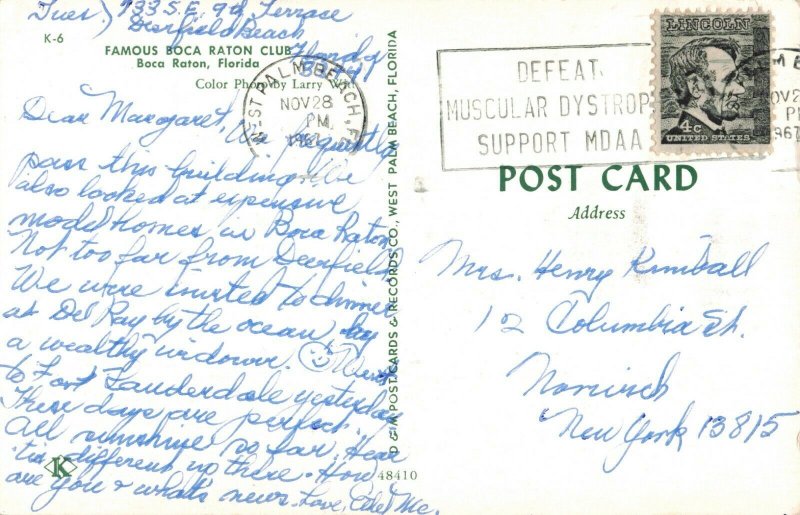 Tues.) 733 S.E. 9th Terrace
Deerfield Beach
Florida
33441
K-6
FAMOUS BOCA RATON CLUB
Boca Raton, Florida
Color Photo by Larry Wi
Dear Margaret, We frequently
pass this building. We
also looked at expensive
model homes in Boca Raton
Not too far from Deerfield
We were invited to dinner
at Del Ray by the ocean by
a wealthy widower. Went
to Fort Lauderdale yesterday
These days are perfect.
All sunshine so far. Hear
'tis different up there. How
are you & what's news. Love,
K
48410
D & M POST CARDS & RECORDS CO., WEST PALM BEACH, FLORIDA
WEST PALM BEACH, F
NOV 28
PM
1967
DEFEAT
MUSCULAR DYSTROP
SUPPORT MDAA
LINCOLN
4c
UNITED STATES
M BE
NOV 28
P
1967
POST CARD
Address
Mrs. Henry Kimball
12 Columbia St.
Norwich
New York 13815